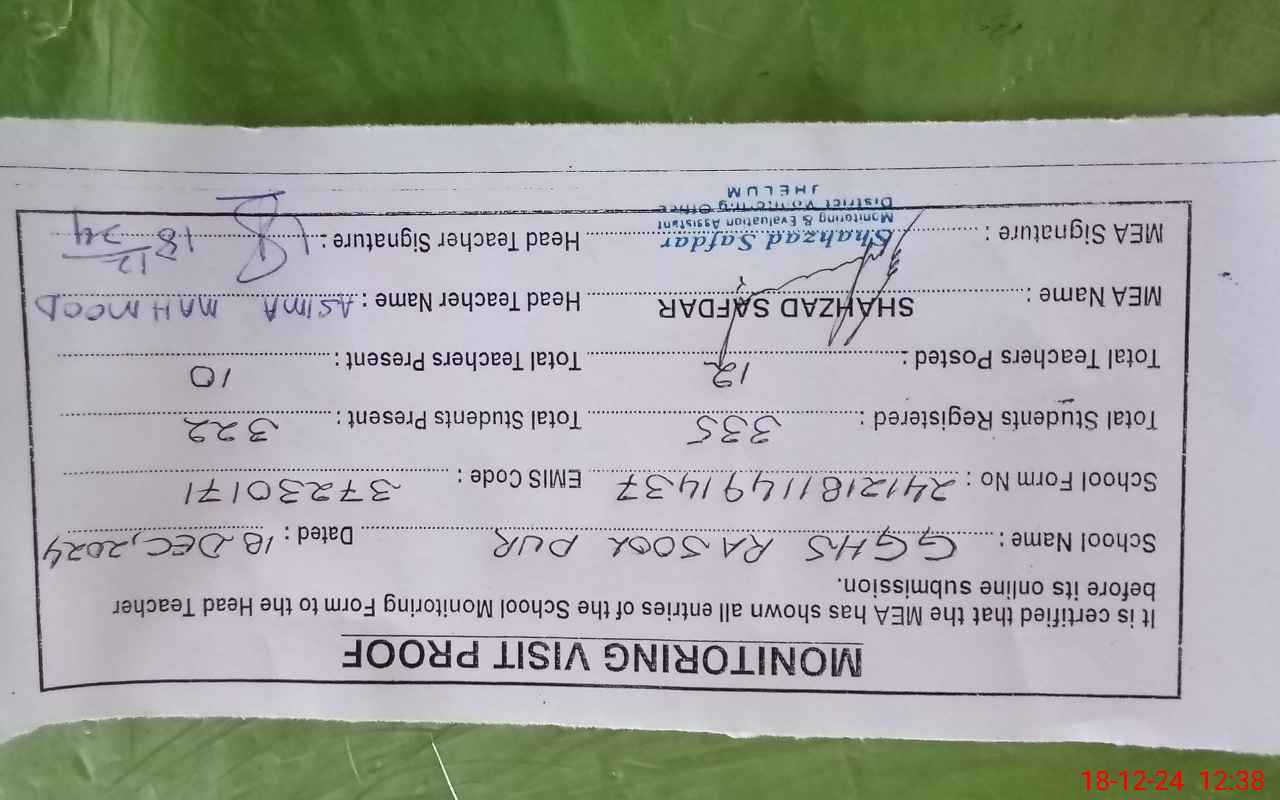 MONITORING VISIT PROOF
It is certified that the MEA has shown all entries of the School Monitoring Form to the Head Teacher
before its online submission.
School Name : GGHS RASOOL PUR Dated : 18 DEC, 2024
School Form No : 2412181149 1437 EMIS Code : 37230171
Total Students Registered : 335 Total Students Present : 322
Total Teachers Posted : 12 Total Teachers Present : 10
MEA Name : SHAHZAD SAFDAR Head Teacher Name : ASIMA MAHMOOD
MEA Signature : Shahzad Safdar Head Teacher Signature : 18/12 24
Monitoring & Evaluation Assistant
District Monitoring Office
JHELUM
18-12-24 12:38